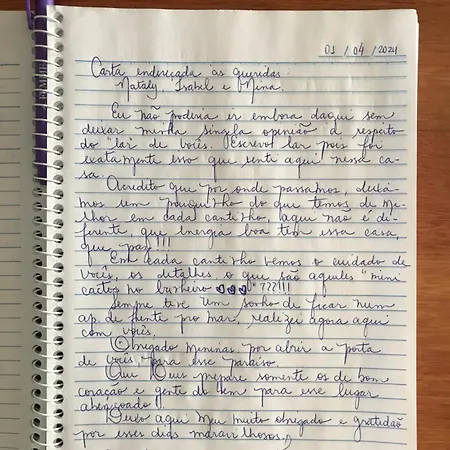 01/04/2024
Carta endereçada as queridas
Nataly, Isabel e Mina.
Eu não poderia ir embora daqui sem
deixar minha singela openião a respeito
do "lar de vocês. Escrevo! lar pois foi
exatamente isso que senti aqui nessa ca-
sa.
Acredito que por onde passamos, deixa-
mos um pouquinho do que temos de me-
lhor em cada cantinho, aqui não é di-
ferente, que energia boa tem essa casa,
que paz!!!
Em cada cantinho vemos o cuidado de
vocês, os detalhes, o que são aqueles "mini
cactos no banheiro ♡♡♡"???!!!
Sempre tive um sonho de ficar num
ap. de frente pro mar, realizei agora aqui
com vocês.
Obrigado meninas, por abrir a porta
de vocês, para esse paraíso.
Que Deus prepare somente os de bom
coração e gente do bem para esse lugar
abençoado
Deixo aqui meu muito obrigado e gratidão
por esses dias maravilhosos.